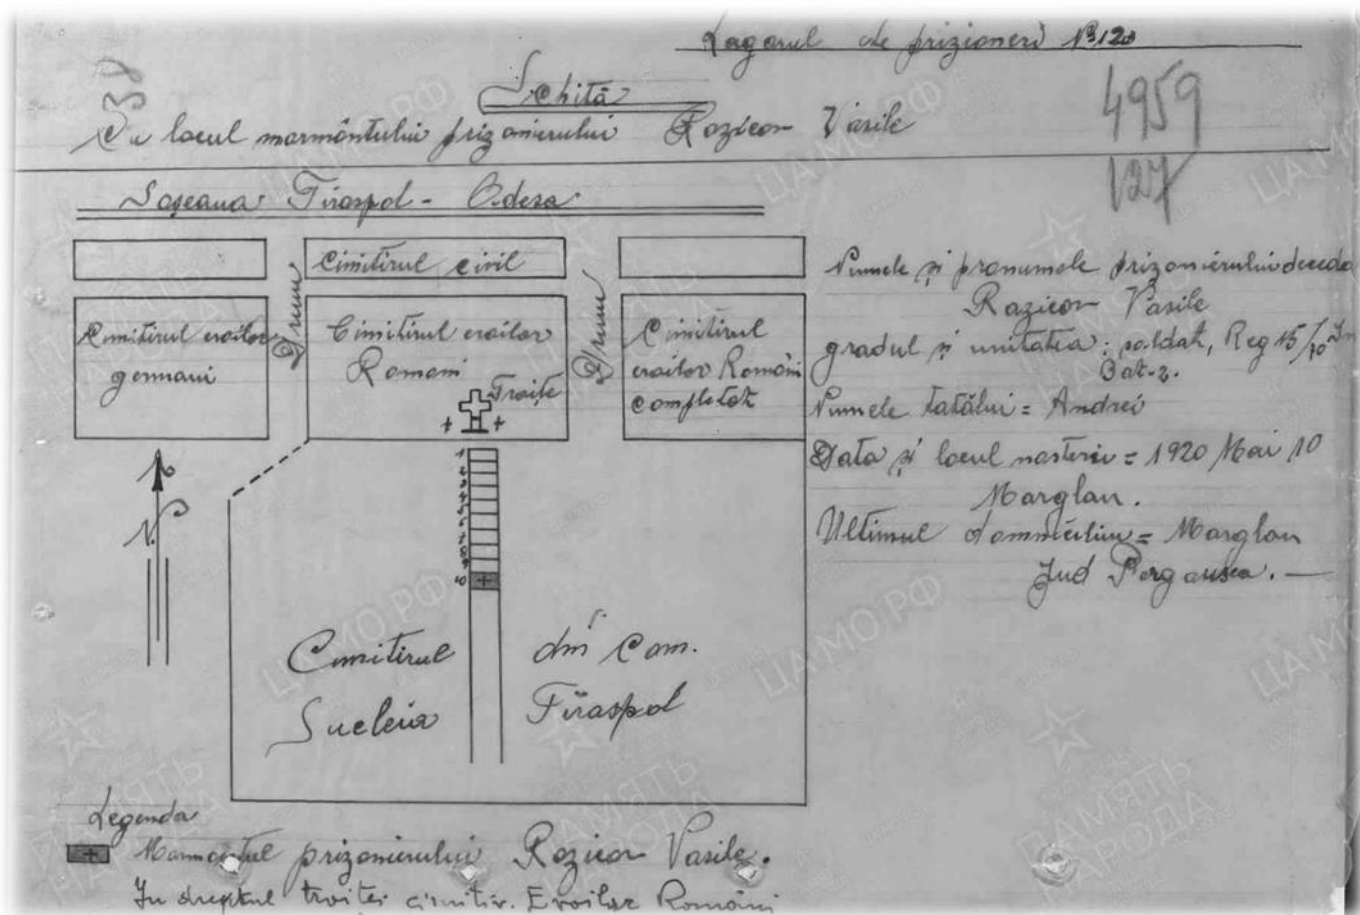 Lagarul de prizioneri № 120
38
Schită
Cu locul mormôntului prizonierului Rozicor Vasile
4959
127
Soşeaua Tiraspol - Odesa
Cimitirul civil
Cimitirul eroilor
germani
Drum
Cimitirul eroilor
Romani
Troiţe
Drum
Cimitirul
eroilor Români
completat
1
2
3
4
5
6
7
8
9
10
N
Cimitirul din Com.
Sucleia Tiraspol
Numele şi pronumele prizonierului deceda
Razicor Vasile
gradul şi unitatea: soldat, Reg 15/10
Bat-2.
Numele tatălui = Andrei
Data şi locul nasterii = 1920 Mai 10
Marglan.
Ultimul domiciliu = Marglan
Jud Pergausea. —
Legenda
Mormôntul prizonierului Rozicor Vasile.
In dreptul troitei cimitir. Eroilor Români
ЦАМО РФ
ПАМЯТЬ НАРОДА